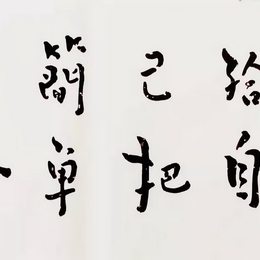 给自
己把
簡单